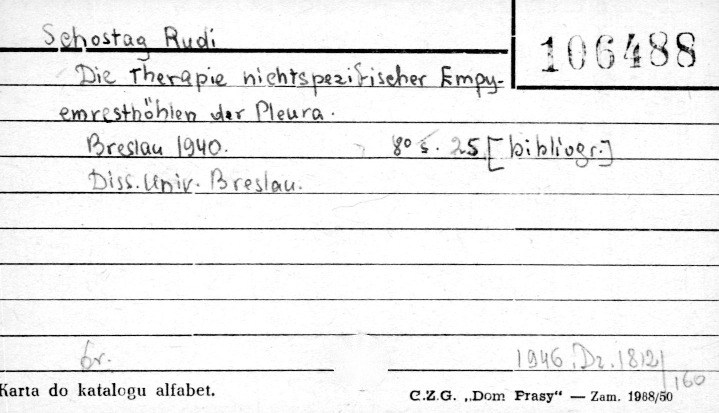 Schostag Rudi
106488
Die Therapie nichtspezifischer Empy-
emresthöhlen der Pleura.
Breslau 1940. 8° s. 25 [bibliogr.]
Diss. Univ. Breslau.
br. 1946. Dz. 1812/
160
Karta do katalogu alfabet. C.Z.G. „Dom Prasy“ — Zam. 1968/50